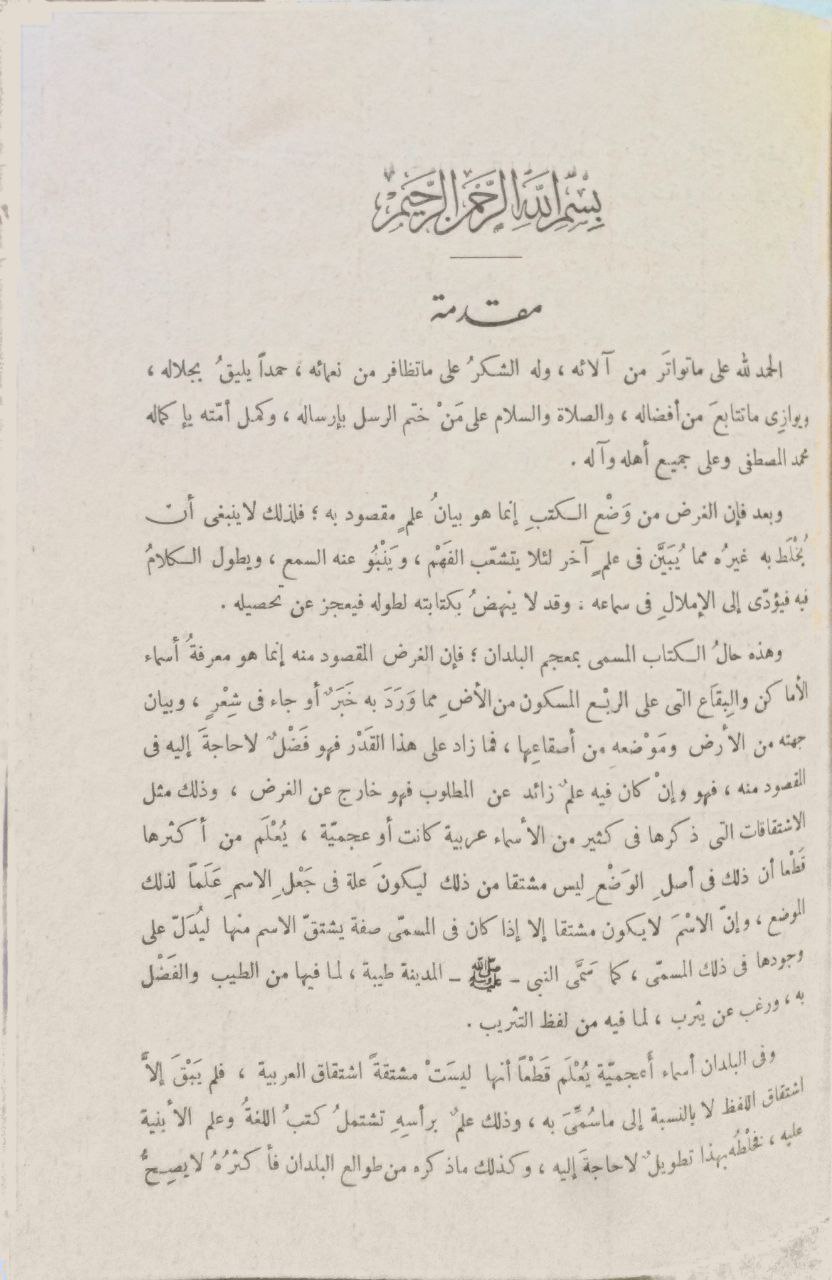 بِسْمِ اللَّهِ الرَّحْمَنِ الرَّحِيمِ
مقدمة
الحمد لله على ماتواتَر من آلائه ، وله الشكرُ على ماتظافر من نعمائه ، حمداً يليقُ بجلاله ،
ويوازِى ماتتابعَ من أفضاله ، والصلاة والسلام على مَنْ ختم الرسل بإرساله ، وكمل أمّته بإكماله
محمد المصطفى وعلى جميع أهله وآله .
وبعد فإن الغرض من وَضْع الكتبِ إنما هو بيانُ علمٍ مقصود به ؛ فلذلك لاينبغى أن
يُخْلَط به غيرُه مما يُبَيَّن فى علمٍ آخر لئلا يتشعّب الفَهْم ، ويَنْبُو عنه السمع ، ويطول الكلامُ
فيه فيؤدّى إلى الإملالِ فى سماعه ؛ وقد لا ينهضُ بكتابته لطوله فيعجز عن تحصيله .
وهذه حالُ الكتاب المسمى بمعجم البلدان ؛ فإن الغرض المقصود منه إنما هو معرفةُ أسماء
الأماكن والبِقَاع التى على الربْع المسكون من الأضِ مما وَرَدَ به خَبَرٌ أو جاء فى شِعْرٍ ، وبيان
جهته من الأرض ومَوْضعهِ من أصقاعِها ، فما زاد على هذا القَدْر فهو فَضْلٌ لاحاجةَ إليه فى
المقصود منه ، فهو وإنْ كان فيه علمٌ زائد عن المطلوب فهو خارج عن الغرض ، وذلك مثل
الاشتقاقات التى ذكرها فى كثير من الأسماء عربية كانت أو عجميّة ، يُعْلَم من أكثرها
قَطْعا أن ذلك فى أصلِ الوَضْعِ ليس مشتقا من ذلك ليكونَ علة فى جَعْلِ الاسمِ عَلَماً لذلك
الموضع ، وإنّ الاسْمَ لايكون مشتقا إلا إذا كان فى المسمّى صفة يشتقّ الاسم منها ليُدَلّ على
وجودها فى ذلك المسمّى ، كما سَمَّى النبى - ﷺ - المدينة طيبة ، لما فيها من الطيب والفَضْل
به ، ورغب عن يثرب ، لما فيه من لفظ التثريب .
وفى البلدان أسماء أَعجميّة يُعْلَم قَطْعاً أنها ليسَتْ مشتقةً اشتقاق العربية ، فلم يَبْقَ إلاَّ
اشتقاق اللفظ لا بالنسبة إلى ماسُمِّىَ به ، وذلك علمٌ برأسِهِ تشتملُ كتبُ اللغةُ وعلم الأبنية
عليه ، فخَلْطُه بهذا تطويلٌ لاحاجةَ إليه ، وكذلك ماذكره من طوالع البلدان فأكثرُهُ لايصِحُّ